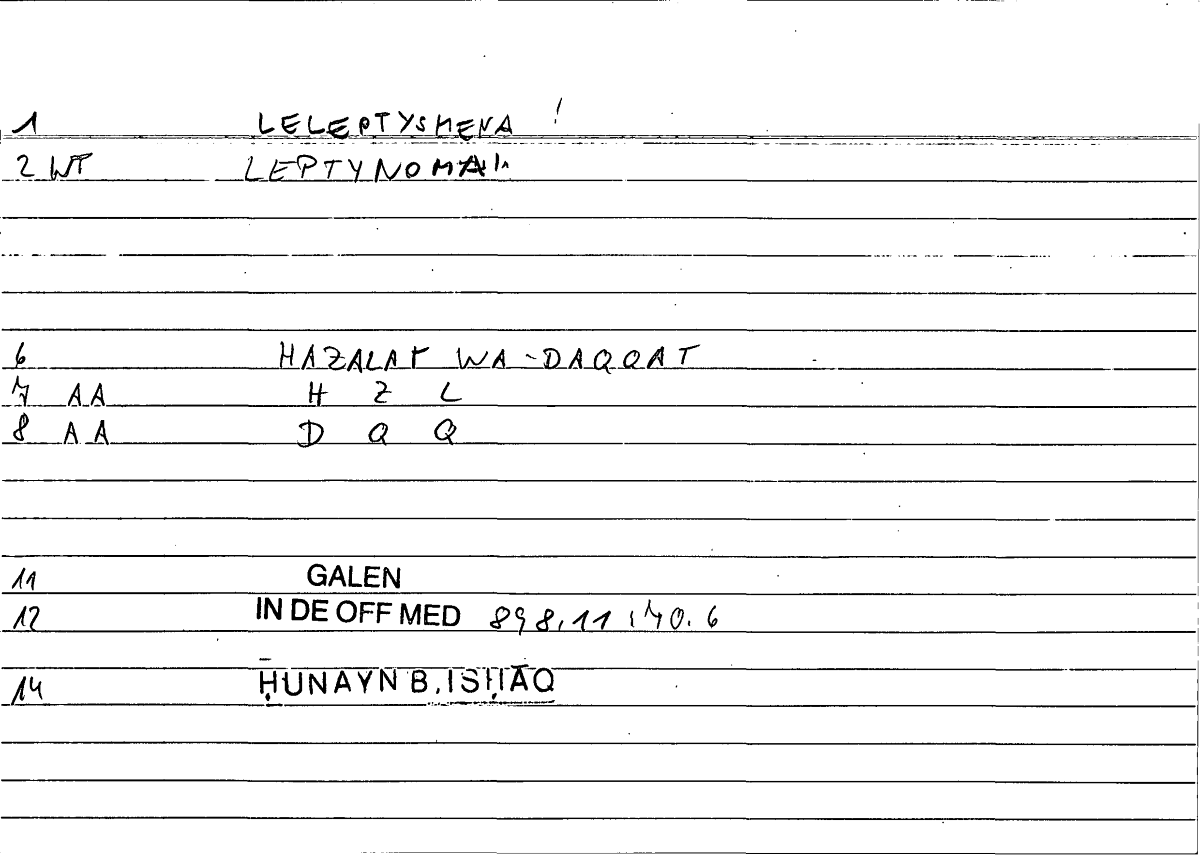 1 LELEPTYSMENA !
2 WT LEPTYNOMAI
6 HAZALAT WA-DAQQAT
7 AA H Z L
8 AA D Q Q
11 GALEN
12 IN DE OFF MED 898,11 ; 70.6
14 ḤUNAYN B. ISḤĀQ